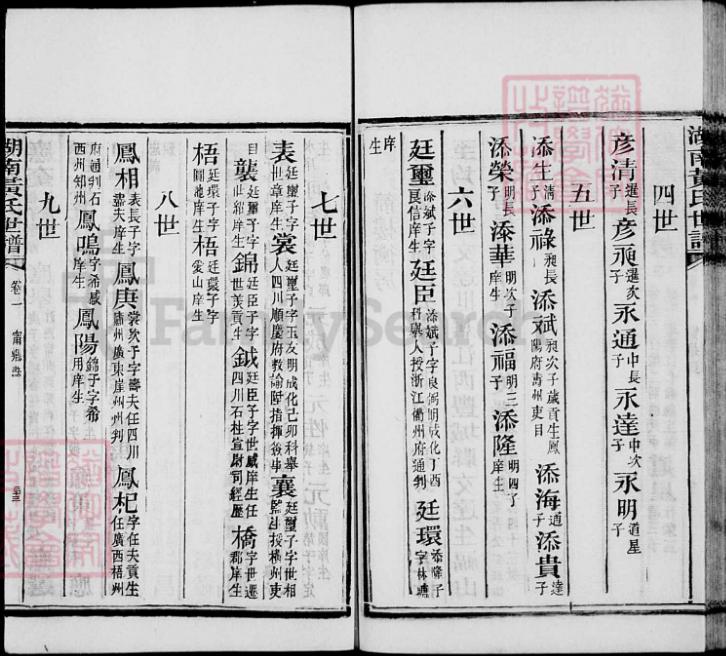 湖南黃氏世譜
四世
彥清選長子 彥顗選次子 永通中長子 永達中次子 永明道星子
五世
添生清子 添祿昶長子 添斌昶次子歲貢生鳳陽府壽州吏目 添海通子 添貴達子
添榮明長子 添華明次子庠生 添福明三子 添隆明四子庠生
六世
廷璽添斌子字良信庠生 廷臣添斌子字良弼明成化丁酉科舉人授浙江衢州府通判 廷環添隆子字林塘
庠生
七世
表廷璽子字世章庠生 裳廷璽子字玉友明成化己卯科舉人四川順慶府教諭陞指揮僉事 襄廷璽子字世相監生授橫州吏
目 襲廷璽子字世紹庠生 錦廷臣子字世美貢生 鉞廷臣子字世威庠生任四川石柱宣慰司經歷 橋字世遷郡庠生
梧廷環子字圖池庠生 梧廷環子字愛山庠生
八世
鳳相表長子字藎夫庠生 鳳庚裳次子字壽夫任四川肅州廣東崖州州判 鳳杞字任夫貢生任廣西梧州
府通判石西州知州 鳳鳴字希威庠生 鳳陽錦子字希用庠生
九世
湖南黃氏世譜 卷一 甯